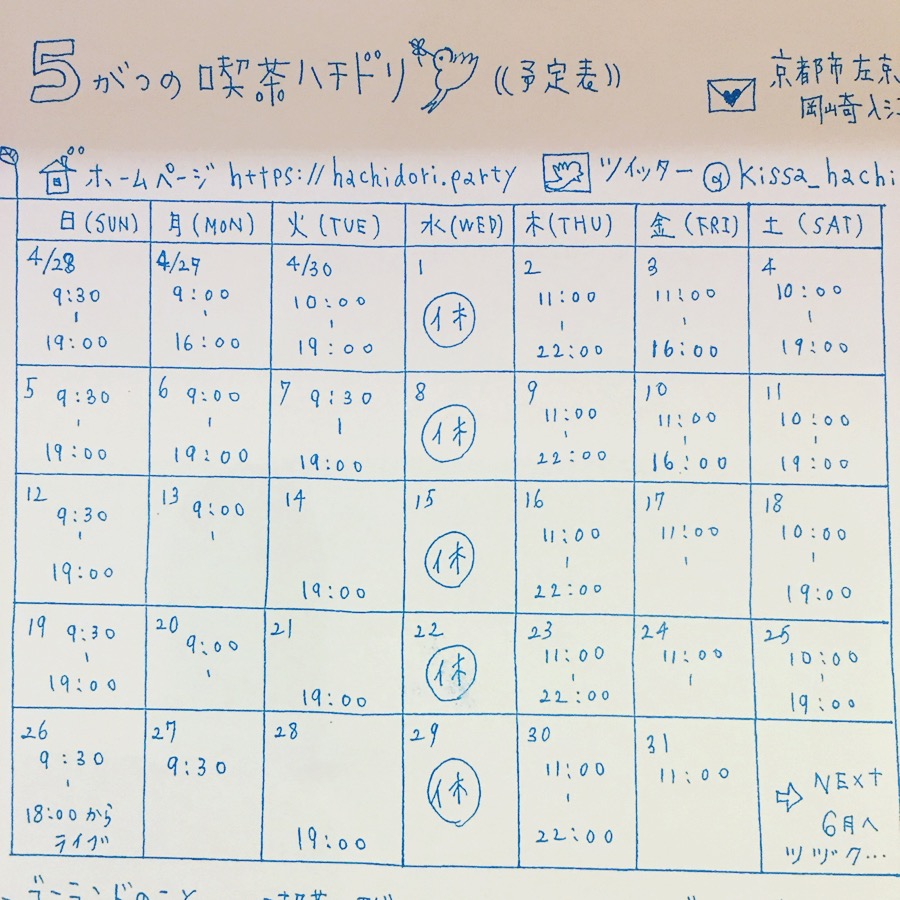 5がつの喫茶ハチドリ((予定表))
京都市左京
岡崎入江
ホームページ https://hachidori.party ツイッター @kissa_hachi
日(SUN) 月(MON) 火(TUE) 水(WED) 木(THU) 金(FRI) 土(SAT)
4/28 4/29 4/30 1 2 3 4
9:30 9:00 10:00 休 11:00 11:00 10:00
19:00 16:00 19:00 22:00 16:00 19:00
5 6 7 8 9 10 11
9:30 9:00 9:30 休 11:00 11:00 10:00
19:00 19:00 19:00 22:00 16:00 19:00
12 13 14 15 16 17 18
9:30 9:00 休 11:00 11:00 10:00
19:00 19:00 22:00 19:00
19 20 21 22 23 24 25
9:30 9:00 休 11:00 11:00 10:00
19:00 19:00 22:00 19:00
26 27 28 29 30 31
9:30 9:30 休 11:00 11:00 ⇨ NEXT
18:00から 19:00 22:00 6月へ
ライブ ツヅク…